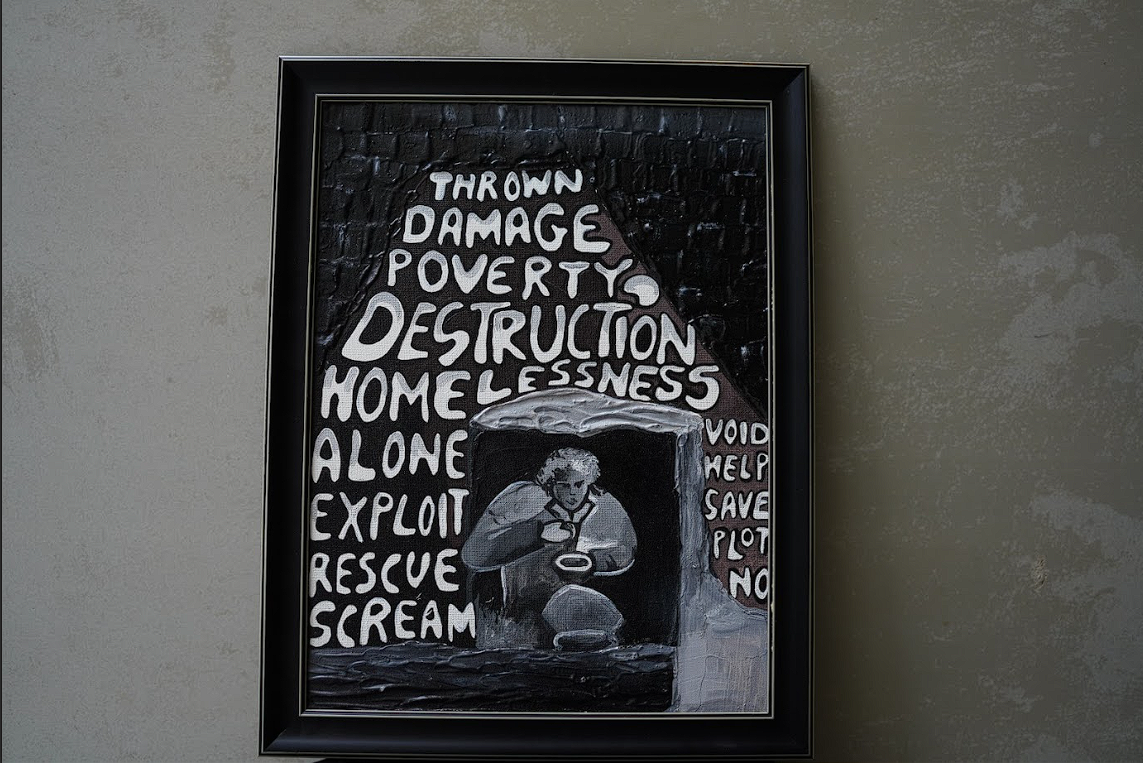 THROWN
DAMAGE
POVERTY
DESTRUCTION
HOMELESSNESS
ALONE
EXPLOIT
RESCUE
SCREAM
VOID
HELP
SAVE
PLOT
NO